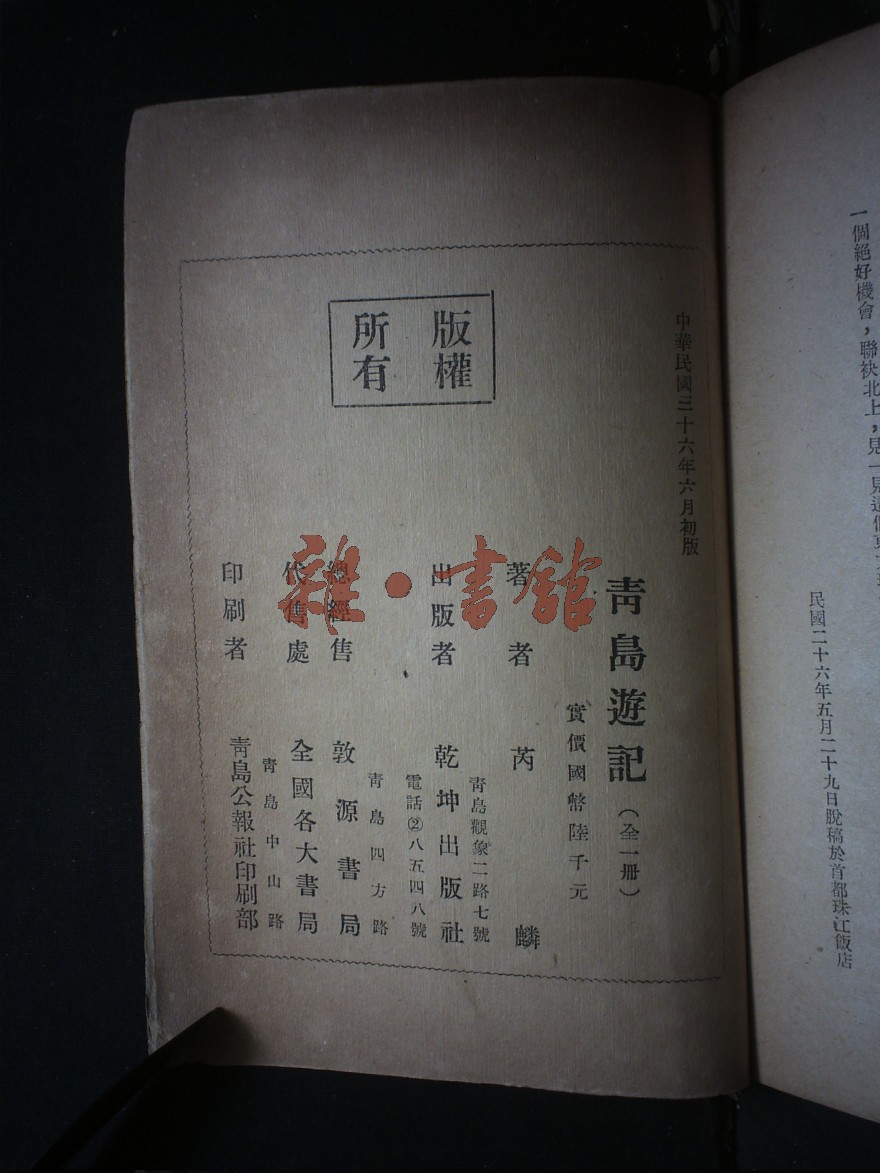 一個絕好機會，聯袂北上，見一見這個
民國二十六年五月二十九日脫稿於首都珠江飯店
中華民國三十六年六月初版
版權
所有
青島遊記（全一冊）
實價國幣陸千元
著者 芮麟
青島觀象二路七號
出版者 乾坤出版社
電話②八五四八號
青島四方路
總經售 敦源書局
代售處 全國各大書局
青島中山路
印刷者 青島公報社印刷部
雜·書館